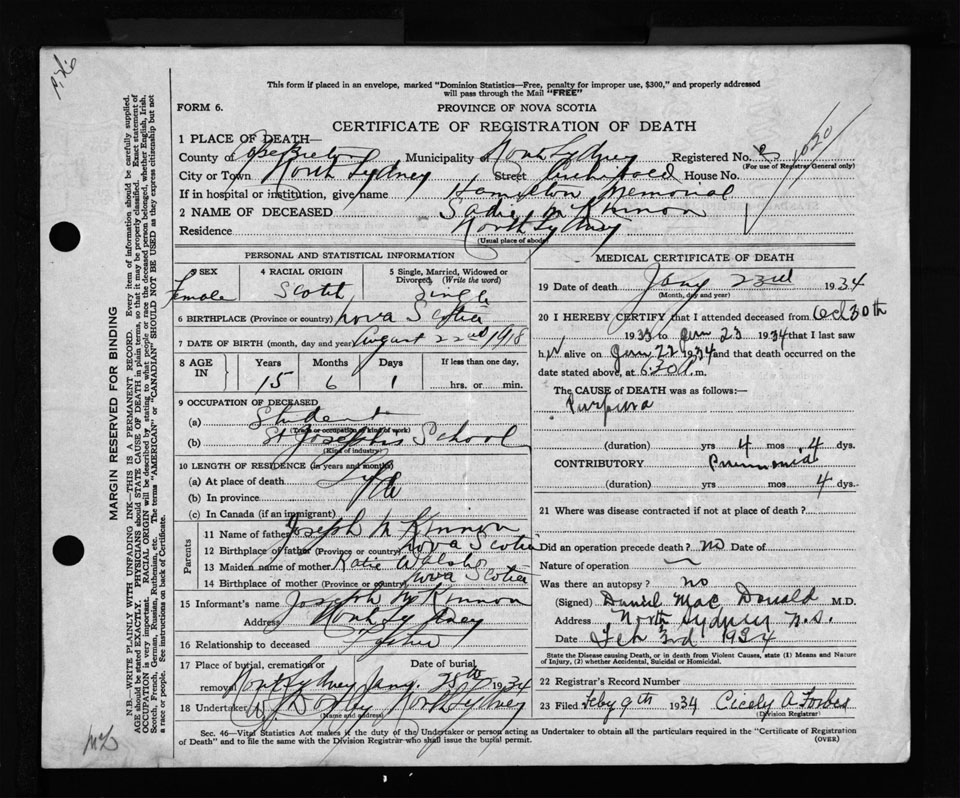 This form if placed in an envelope, marked "Dominion Statistics—Free, penalty for improper use, $300," and properly addressed
will pass through the Mail "FREE"
FORM 6.
PROVINCE OF NOVA SCOTIA
CERTIFICATE OF REGISTRATION OF DEATH
1 PLACE OF DEATH—
County of Cape Breton Municipality North Sydney Registered No.
(For use of Registrar General only)
1020
City or Town North Sydney Street Archibald House No.
If in hospital or institution, give name Hamilton Memorial
2 NAME OF DECEASED Sadie McKinnon
Residence North Sydney
(Usual place of abode)
PERSONAL AND STATISTICAL INFORMATION
3 SEX Female
4 RACIAL ORIGIN Scotch
5 Single, Married, Widowed or Divorced (Write the word) Single
6 BIRTHPLACE (Province or country) Nova Scotia
7 DATE OF BIRTH (month, day and year) August 22nd 1918
8 AGE IN Years Months Days If less than one day,
15 6 1 hrs. or min.
9 OCCUPATION OF DECEASED
(a) Student
(Trade or occupation or kind of work)
(b) St Joseph's School
(Kind of industry)
10 LENGTH OF RESIDENCE (in years and months)
(a) At place of death Life
(b) In province
(c) In Canada (if an immigrant)
Parents
11 Name of father Joseph McKinnon
12 Birthplace of father (Province or country) Nova Scotia
13 Maiden name of mother Katie Walsh
14 Birthplace of mother (Province or country) Nova Scotia
15 Informant's name Joseph McKinnon
Address North Sydney
16 Relationship to deceased Father
17 Place of burial, cremation or removal North Sydney Date of burial Jany. 25th 1934
18 Undertaker North Sydney
(Name and address)
MEDICAL CERTIFICATE OF DEATH
19 Date of death Jany 23rd 1934
(Month, day and year)
20 I HEREBY CERTIFY that I attended deceased from Oct 30th
1933 to Jan 23 1934 that I last saw
her alive on Jan 23 1934 and that death occurred on the
date stated above, at 6:30 A.m.
The CAUSE of DEATH was as follows:—
Purpura
(duration) yrs 4 mos 4 dys.
CONTRIBUTORY Pneumonia
(duration) yrs mos 4 dys.
21 Where was disease contracted if not at place of death?
Did an operation precede death? no Date of
Nature of operation
Was there an autopsy? no
(Signed) Daniel MacDonald M.D.
Address North Sydney N.S.
Date Feb 3rd 1934
State the Disease Causing Death, or in death from Violent Causes, state (1) Means and Nature of Injury, (2) whether Accidental, Suicidal or Homicidal.
22 Registrar's Record Number
23 Filed Feby 9th 1934 Cicely A Forbes
(Division Registrar)
Sec. 46—Vital Statistics Act makes it the duty of the Undertaker or person acting as Undertaker to obtain all the particulars required in the "Certificate of Registration
of Death" and to file the same with the Division Registrar who shall issue the burial permit.
(OVER)
MARGIN RESERVED FOR BINDING
N.B.—WRITE PLAINLY WITH UNFADING INK—THIS IS A PERMANENT RECORD. Every item of information should be carefully supplied.
AGE should be stated EXACTLY. PHYSICIANS should STATE CAUSE OF DEATH in plain terms, so that it may be properly classified. Exact statement of
OCCUPATION is very important. RACIAL ORIGIN will be described by stating to what people or race the deceased person belonged, whether English, Irish,
Scotch, French, German, Russian, Ruthenian, etc. The terms "AMERICAN" or "CANADIAN" SHOULD NOT BE USED as they express citizenship but not
a race or people. See instructions on back of Certificate.